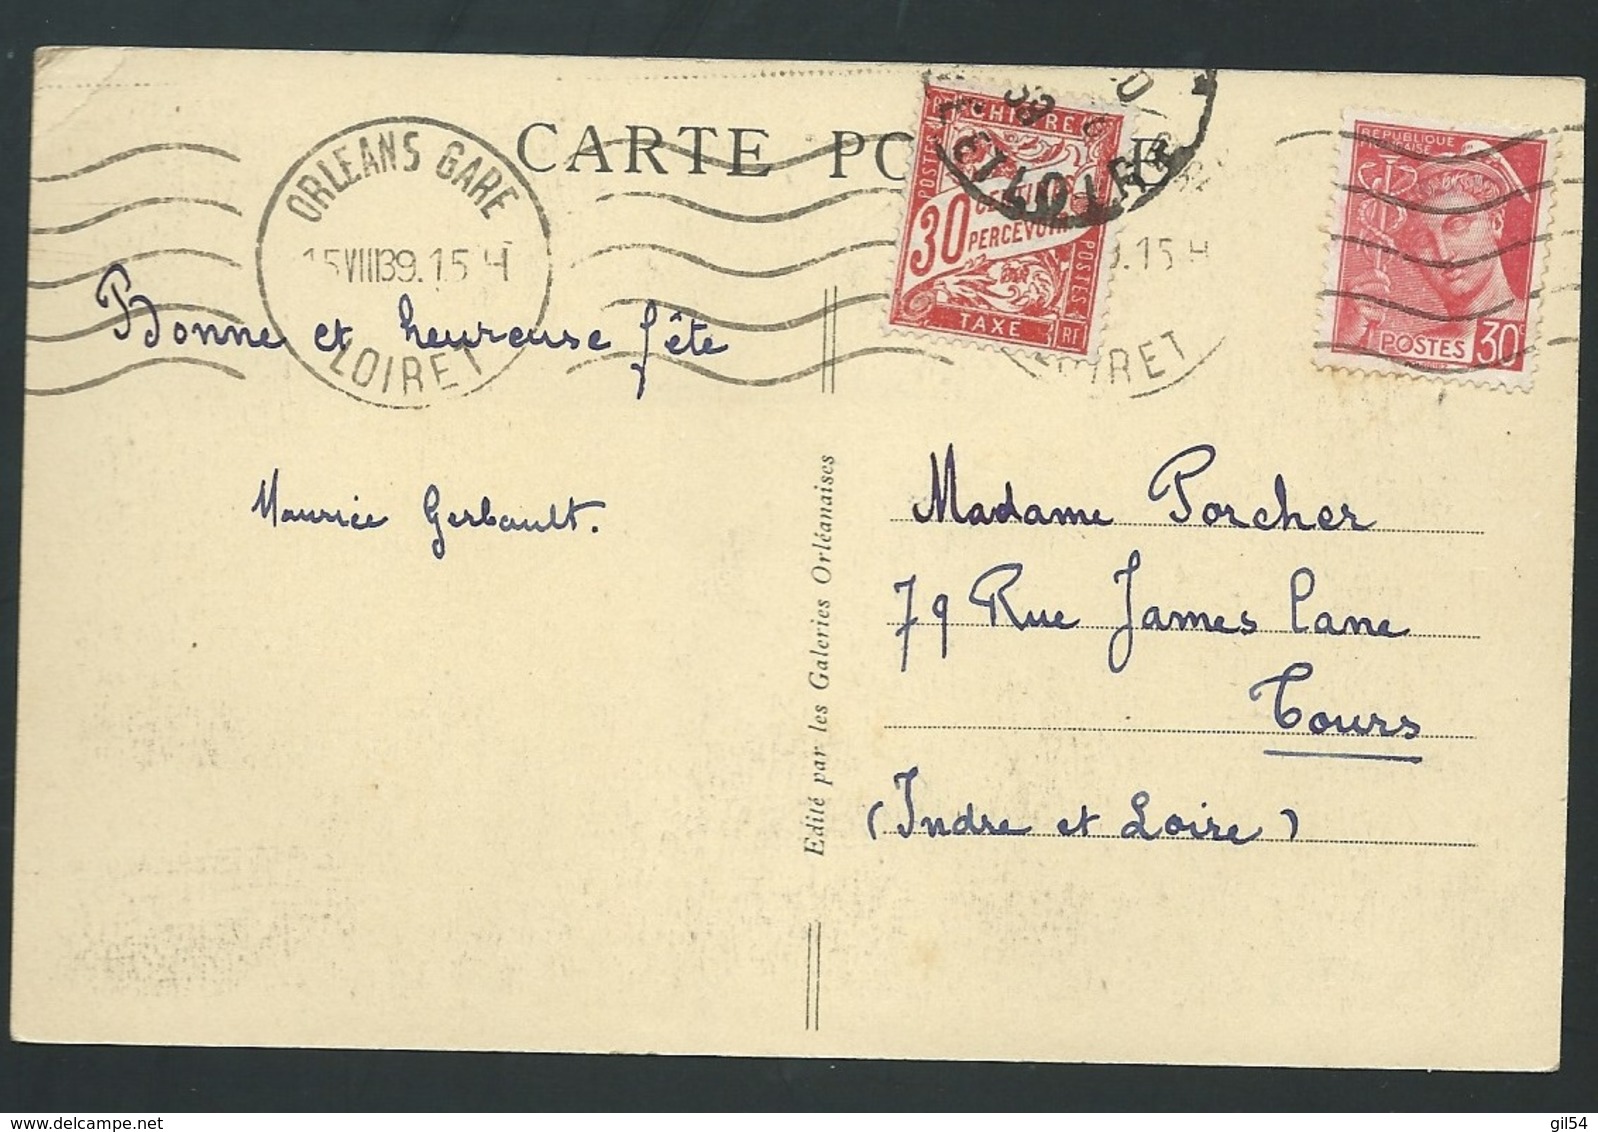 CARTE PO
ORLEANS GARE
15 VIII 39. 15 H
LOIRET
CHIFFRE
POSTES
30
CENTIMES
PERCEVOIR
POSTES
TAXE
RF
9. 15 H
LOIRET
REPUBLIQUE
FRANCAISE
POSTES
30c
Bonne et heureuse fête
Maurice Gerbault.
Edité par les Galeries Orléanaises
Madame Porcher
79 Rue James Cane
Tours
(Indre et Loire)
gil54